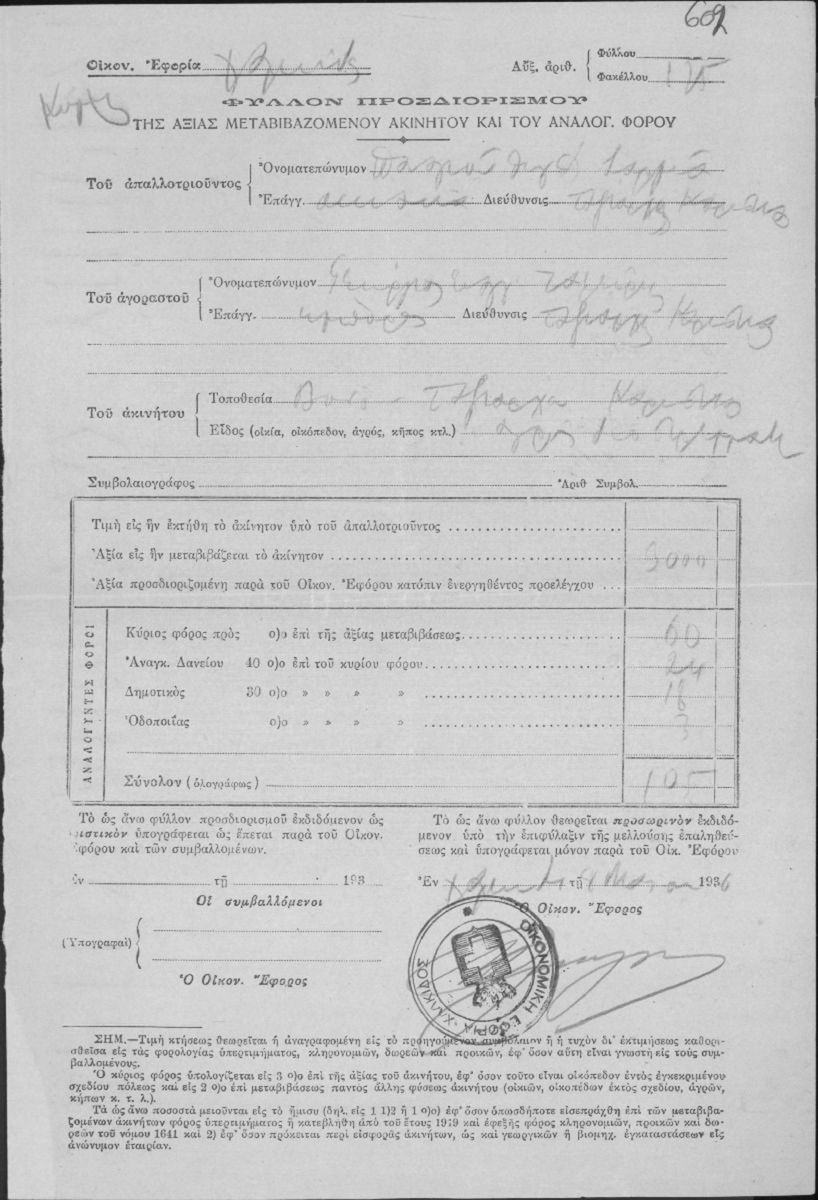 602
Οἰκον. Ἐφορία Χαλκίδος
Αὔξ. ἀριθ. { Φύλλου
Φακέλλου
ΦΥΛΛΟΝ ΠΡΟΣΔΙΟΡΙΣΜΟΥ
ΤΗΣ ΑΞΙΑΣ ΜΕΤΑΒΙΒΑΖΟΜΕΝΟΥ ΑΚΙΝΗΤΟΥ ΚΑΙ ΤΟΥ ΑΝΑΛΟΓ. ΦΟΡΟΥ
Τοῦ ἀπαλλοτριοῦντος { Ὀνοματεπώνυμον
Ἐπάγγ. Διεύθυνσις
Τοῦ ἀγοραστοῦ { Ὀνοματεπώνυμον Γεώργιος
Ἐπάγγ. Διεύθυνσις
Τοῦ ἀκινήτου { Τοποθεσία
Εἶδος (οἰκία, οἰκόπεδον, ἀγρός, κῆπος κτλ.) ἀγρὸς
Συμβολαιογράφος Ἀριθ Συμβολ.
Τιμὴ εἰς ἣν ἐκτήθη τὸ ἀκίνητον ὑπὸ τοῦ ἀπαλλοτριοῦντος
Ἀξία εἰς ἣν μεταβιβάζεται τὸ ἀκίνητον 3000
Ἀξία προσδιοριζομένη παρὰ τοῦ Οἰκον. Ἐφόρου κατόπιν ἐνεργηθέντος προελέγχου
ΑΝΑΛΟΓΥΝΤΕΣ ΦΟΡΟΙ
Κύριος φόρος πρὸς ο)ο ἐπὶ τῆς ἀξίας μεταβιβάσεως 60
Ἀναγκ. Δανείου 40 ο)ο ἐπὶ τοῦ κυρίου φόρου 24
Δημοτικὸς 30 ο)ο » » » » 18
Ὁδοποιΐας ο)ο » » » » 3
Σύνολον (ὁλογράφως) 105
Τὸ ὡς ἄνω φύλλον προσδιορισμοῦ ἐκδιδόμενον ὡς
ριστικὸν ὑπογράφεται ὡς ἕπεται παρὰ τοῦ Οἰκον.
Ἐφόρου καὶ τῶν συμβαλλομένων.
Ἐν τῇ 193
Οἱ συμβαλλόμενοι
(Ὑπογραφαὶ) {
Ὁ Οἰκον. Ἔφορος
Τὸ ὡς ἄνω φύλλον θεωρεῖται προσωρινὸν ἐκδιδό-
μενον ὑπὸ τὴν ἐπιφύλαξιν τῆς μελλούσης ἐπαληθεύ-
σεως καὶ ὑπογράφεται μόνον παρὰ τοῦ Οἰκ. Ἐφόρου
Ἐν Χαλκίδι τῇ 1936
Ὁ Οἰκον. Ἔφορος
ΟΙΚΟΝΟΜΙΚΗ ΕΦΟΡΙΑ ΧΑΛΚΙΔΟΣ
ΣΗΜ.—Τιμὴ κτήσεως θεωρεῖται ἡ ἀναγραφομένη εἰς τὸ προηγούμενον συμβόλαιον ἢ ἡ τυχὸν δι' ἐκτιμήσεως καθορι-
σθεῖσα εἰς τὰς φορολογίας ὑπερτιμήματος, κληρονομιῶν, δωρεῶν καὶ προικῶν, ἐφ' ὅσον αὕτη εἶναι γνωστὴ εἰς τοὺς συμ-
βαλλομένους.
Ὁ κύριος φόρος ὑπολογίζεται εἰς 3 ο)ο ἐπὶ τῆς ἀξίας τοῦ ἀκινήτου, ἐφ' ὅσον τοῦτο εἶναι οἰκόπεδον ἐντὸς ἐγκεκριμένου
σχεδίου πόλεως καὶ εἰς 2 ο)ο ἐπὶ μεταβιβάσεως παντὸς ἄλλης φύσεως ἀκινήτου (οἰκιῶν, οἰκοπέδων ἐκτὸς σχεδίου, ἀγρῶν,
κήπων κ. τ. λ.).
Τὰ ὡς ἄνω ποσοστὰ μειοῦνται εἰς τὸ ἥμισυ (δηλ. εἰς 1 1)2 ἢ 1 ο)ο) ἐφ' ὅσον ὁπωσδήποτε εἰσεπράχθη ἐπὶ τῶν μεταβιβα-
ζομένων ἀκινήτων φόρος ὑπερτιμήματος ἢ κατεβλήθη ἀπὸ τοῦ ἔτους 1919 καὶ ἐφεξῆς φόρος κληρονομιῶν, προικῶν καὶ δω-
ρεῶν τοῦ νόμου 1641 καὶ 2) ἐφ' ὅσον πρόκειται περὶ εἰσφορᾶς ἀκινήτων, ὡς καὶ γεωργικῶν ἢ βιομηχ. ἐγκαταστάσεων εἰς
ἀνώνυμον ἑταιρίαν.